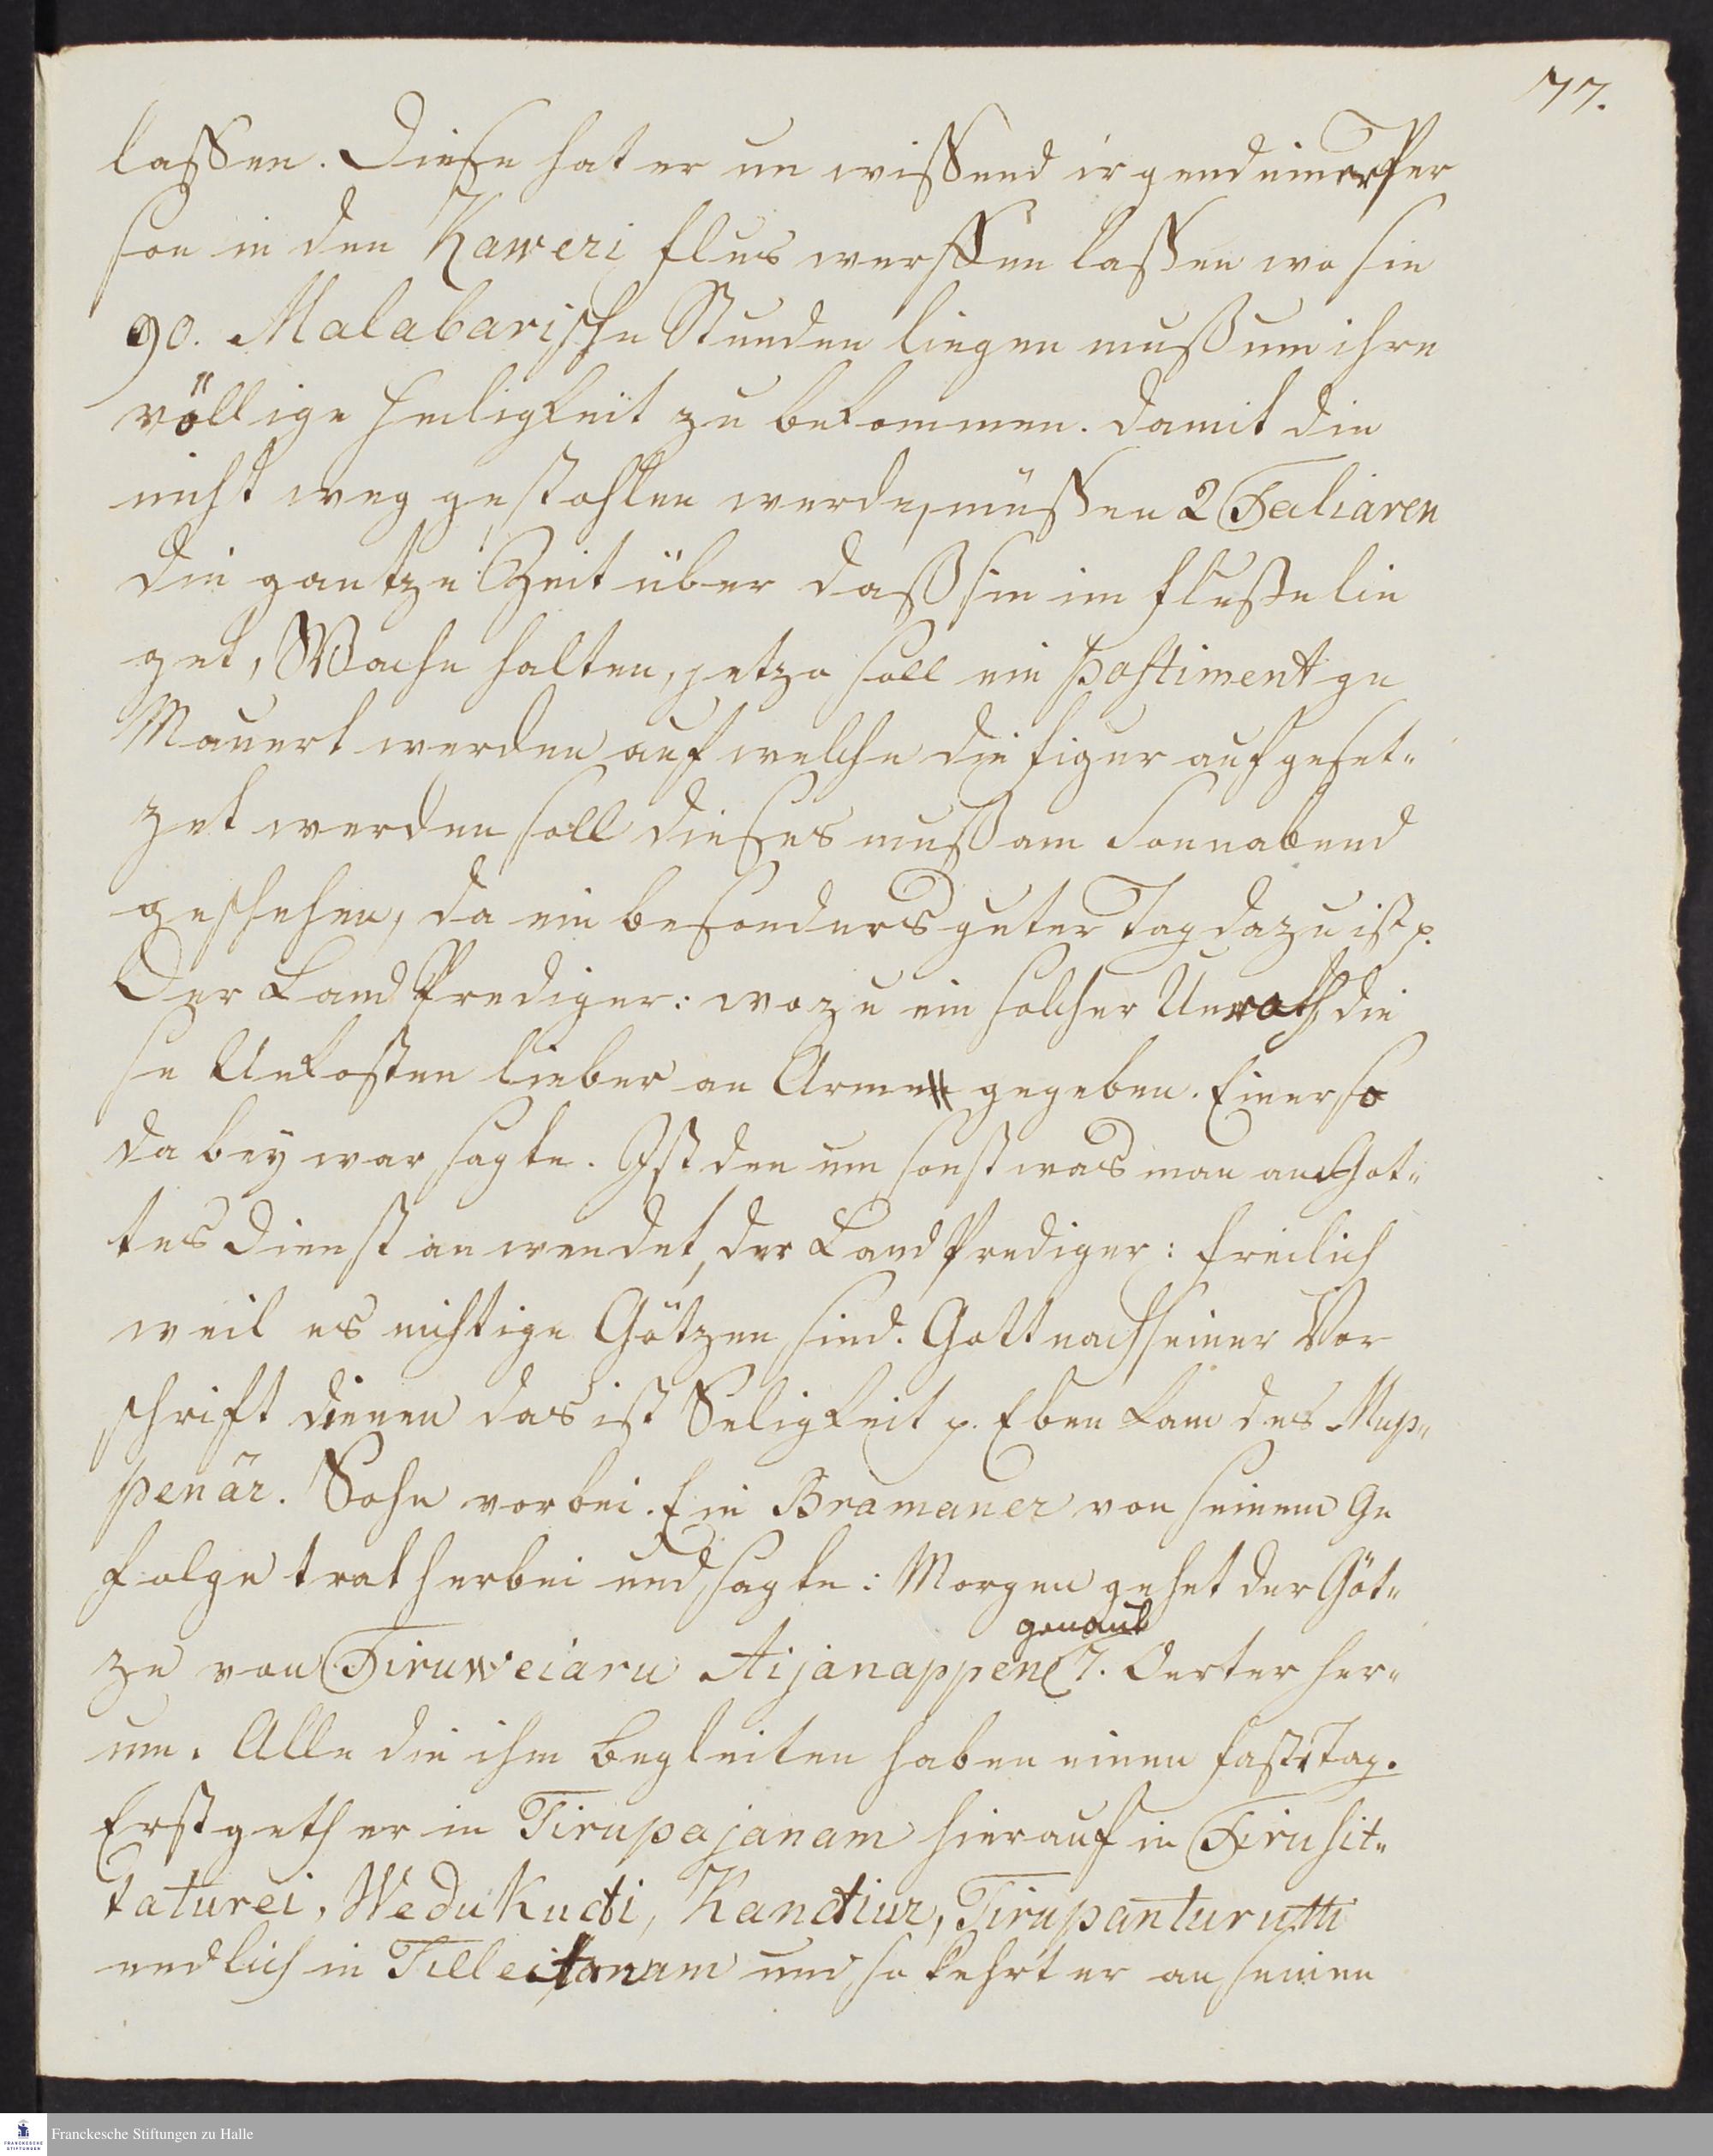 77.
lassen. Diese hat er un wissend irgend einer Per
son in den Kaweri flus werffen lassen wo sie
90. Malabarische Stunden liegen muß um ihre
völlige Heiligkeit zu bekommen. damit die
nicht weg gestohlen werde, müssen 2 Taliaren
die gantze Zeit über daß sie im flusse lie
get, Wache halten, jetzo soll ein postiment ge
Mauert werden auf welche die figur aufgeset„
zet werden soll dieses muß am Sonnabend
geschehen, da ein besonders guter Tag dazu ist p.
Der Land Prediger: wozu ein solcher Unrath die
se Unkosten lieber an Arme gegeben. Einer so
da bey war sagte. Ist den um sonst was man an Got„
tes Dienst an wendet, der Land Prediger: freilich
weil es nichtige Götzen sind. Gott nach seiner Vor
schrift dienen das ist Seligkeit p. Eben kam des Mup„
penār. Sohn vorbei. Ein Bramaner von seinem Ge
folge trat herbei und sagte: Morgen gehet der Göt„
genant
ze von Tiruweiaru Aijanappen 7. Oerter her„
um. Alle die ihm begleiten haben einen fast Tag.
Erst geth er in Tirupajanam hierauf in Tirusit„
taturei, Wedukudi, Kandiur, Tirupanturutti
endlich in Tilleitanam und so kehrt er an seinen
Franckesche Stiftungen zu Halle